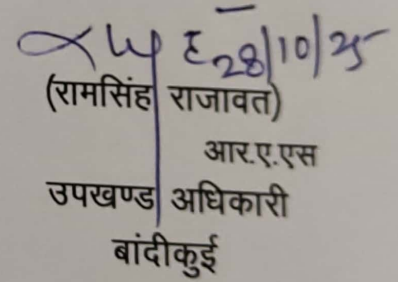 28/10/25
(रामसिंह राजावत)
आर.ए.एस
उपखण्ड अधिकारी
बांदीकुई